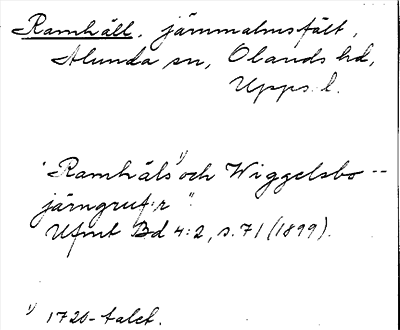 Ramhäll, järnmalmsfält,
Alunda sn, Olands hd,
Upps. l.
"Ramhäls¹⁾ och Wiggelsbo --
järngruf:r".
Ufmt Bd 4:2, s. 71 (1899).
¹⁾ 1720-talet.